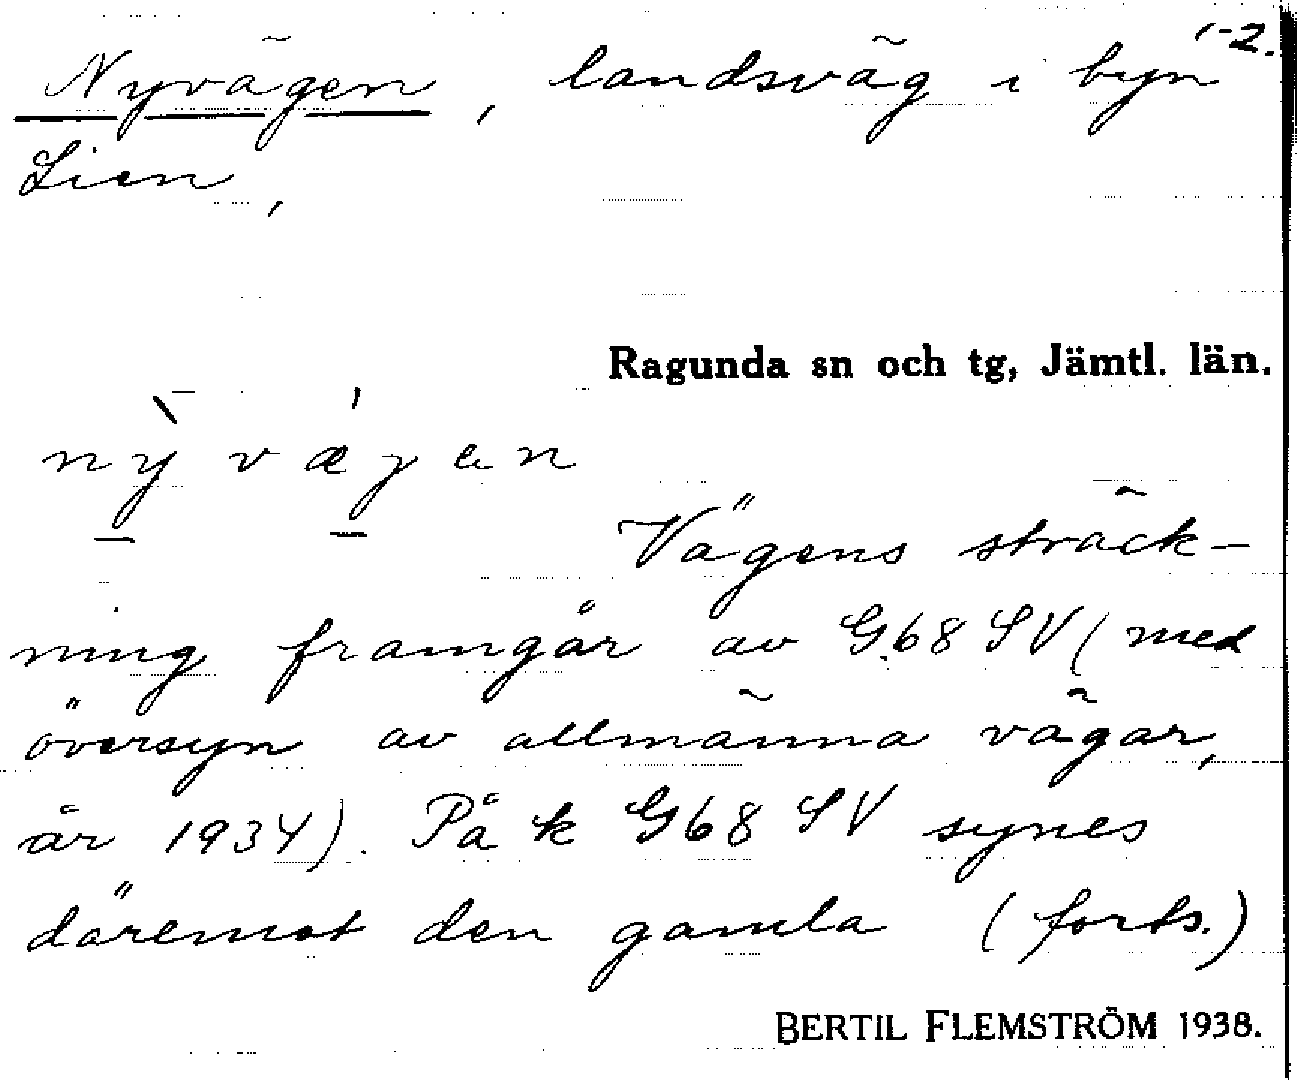 1-2.
Nyvägen, landsväg i byn
Lien,
Ragunda sn och tg, Jämtl. län.
ny̆̀ vægen
Vägens sträck-
ning framgår av G.68 SV (med
översyn av allmänna vägar,
år 1934). På k G68 SV synes
däremot den gamla (forts.)
BERTIL FLEMSTRÖM 1938.